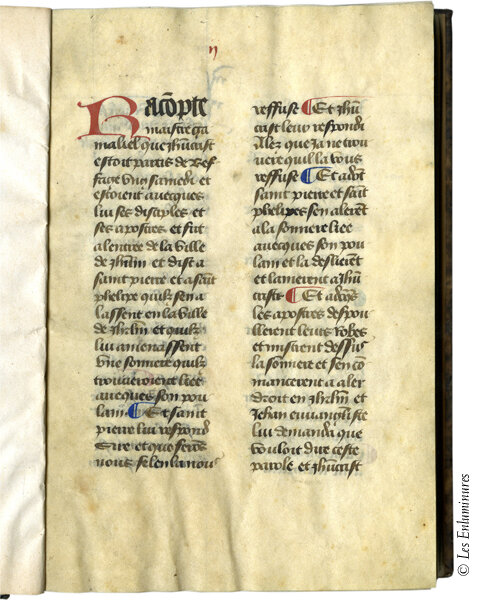 n
Racōpte
maistre ga
maliel que ihūcrist
estoit partis de Bef
fage vng samedi et
estoient avecques
lui ses disciples et
ses apostres et fut
a lentree de la ville
de ihrlm et dist a
saint pierre et a saīt
phelipe quilz sen a
lassent en la ville
de ihrlm et quilz
lui amenassent
vne sonniere quilz
trouveroient liee
avecques son pou
lain ¶ Et saint
pierre lui respond
Sire et que ferōs
nous se len la nous
reffuse ¶ Et ihū
crist leur respondi
Alez que ia ne trou
uere qui la vous
reffuse ¶ Et adōt
saint pierre et saīt
phelipes sen alerēt
a la sonniere liee
avecques son pou
lain et la deslierēt
et lamenerēt a ihū
crist ¶ Et adōcq̄s
les apostres despou
llerent leurs robes
et mistrent dessus
la sonniere et sen cō
mancerent a aler
droit en ihrlm et
Jehan euuangliste
lui demanda que
vouloit dire ceste
parole et ihūcrist
© Les Enluminures